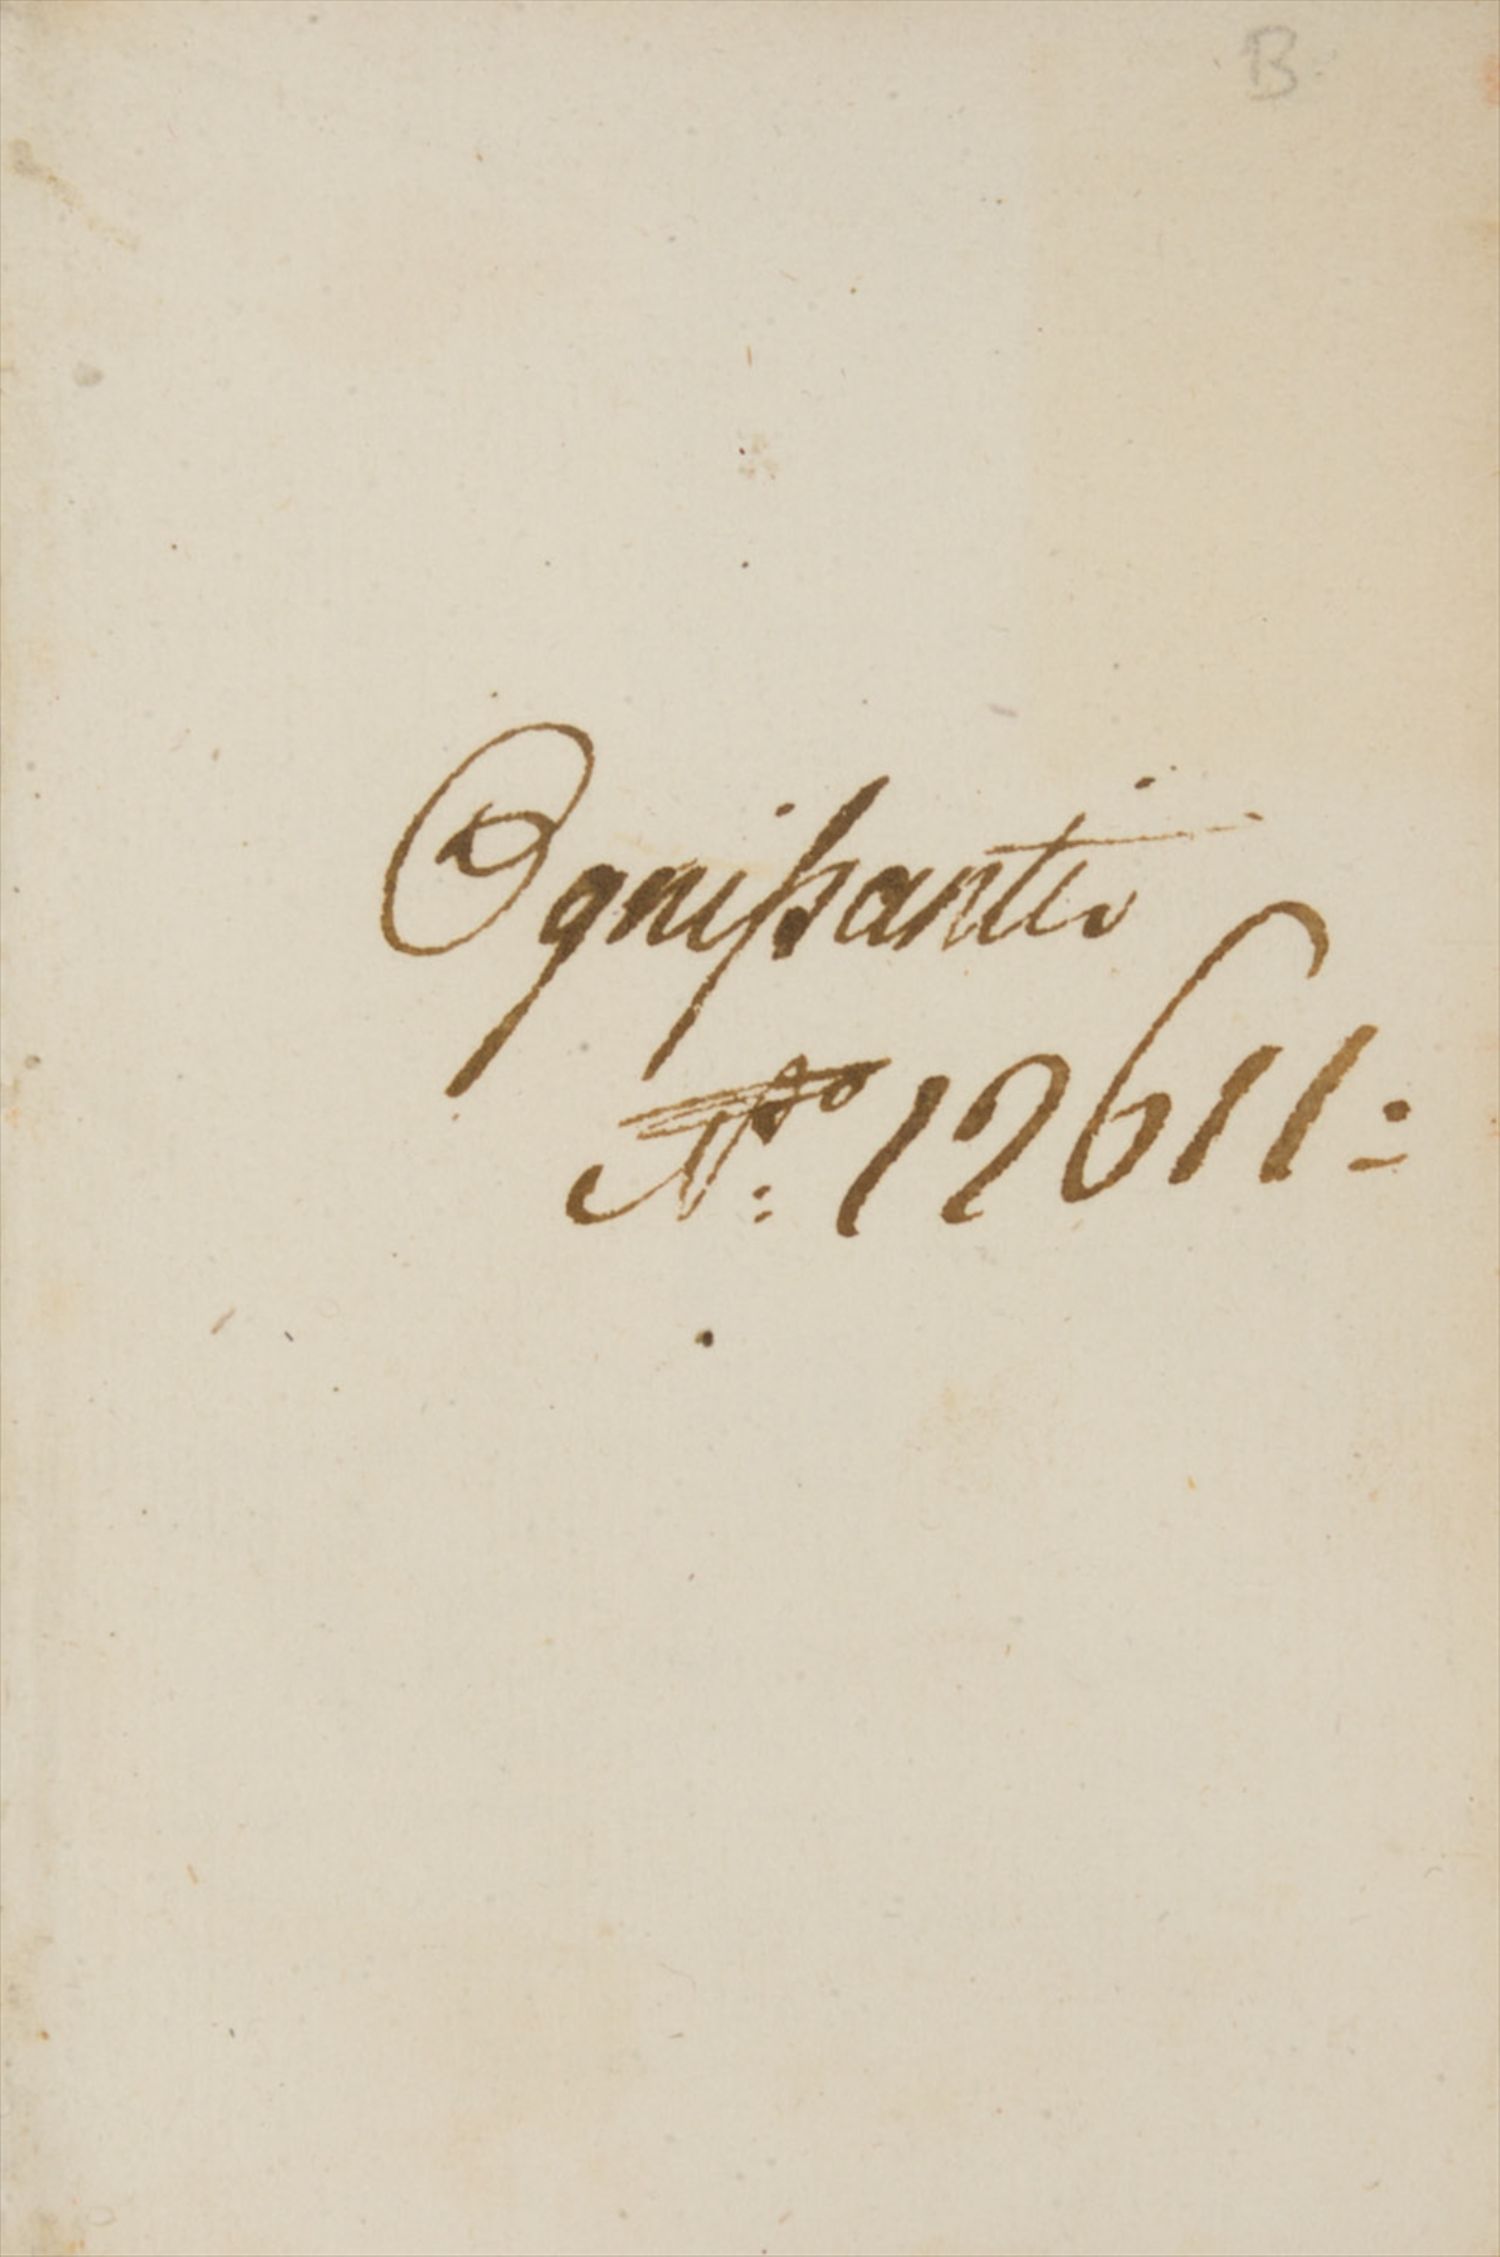 B.
Ognissanti
No: 12611: